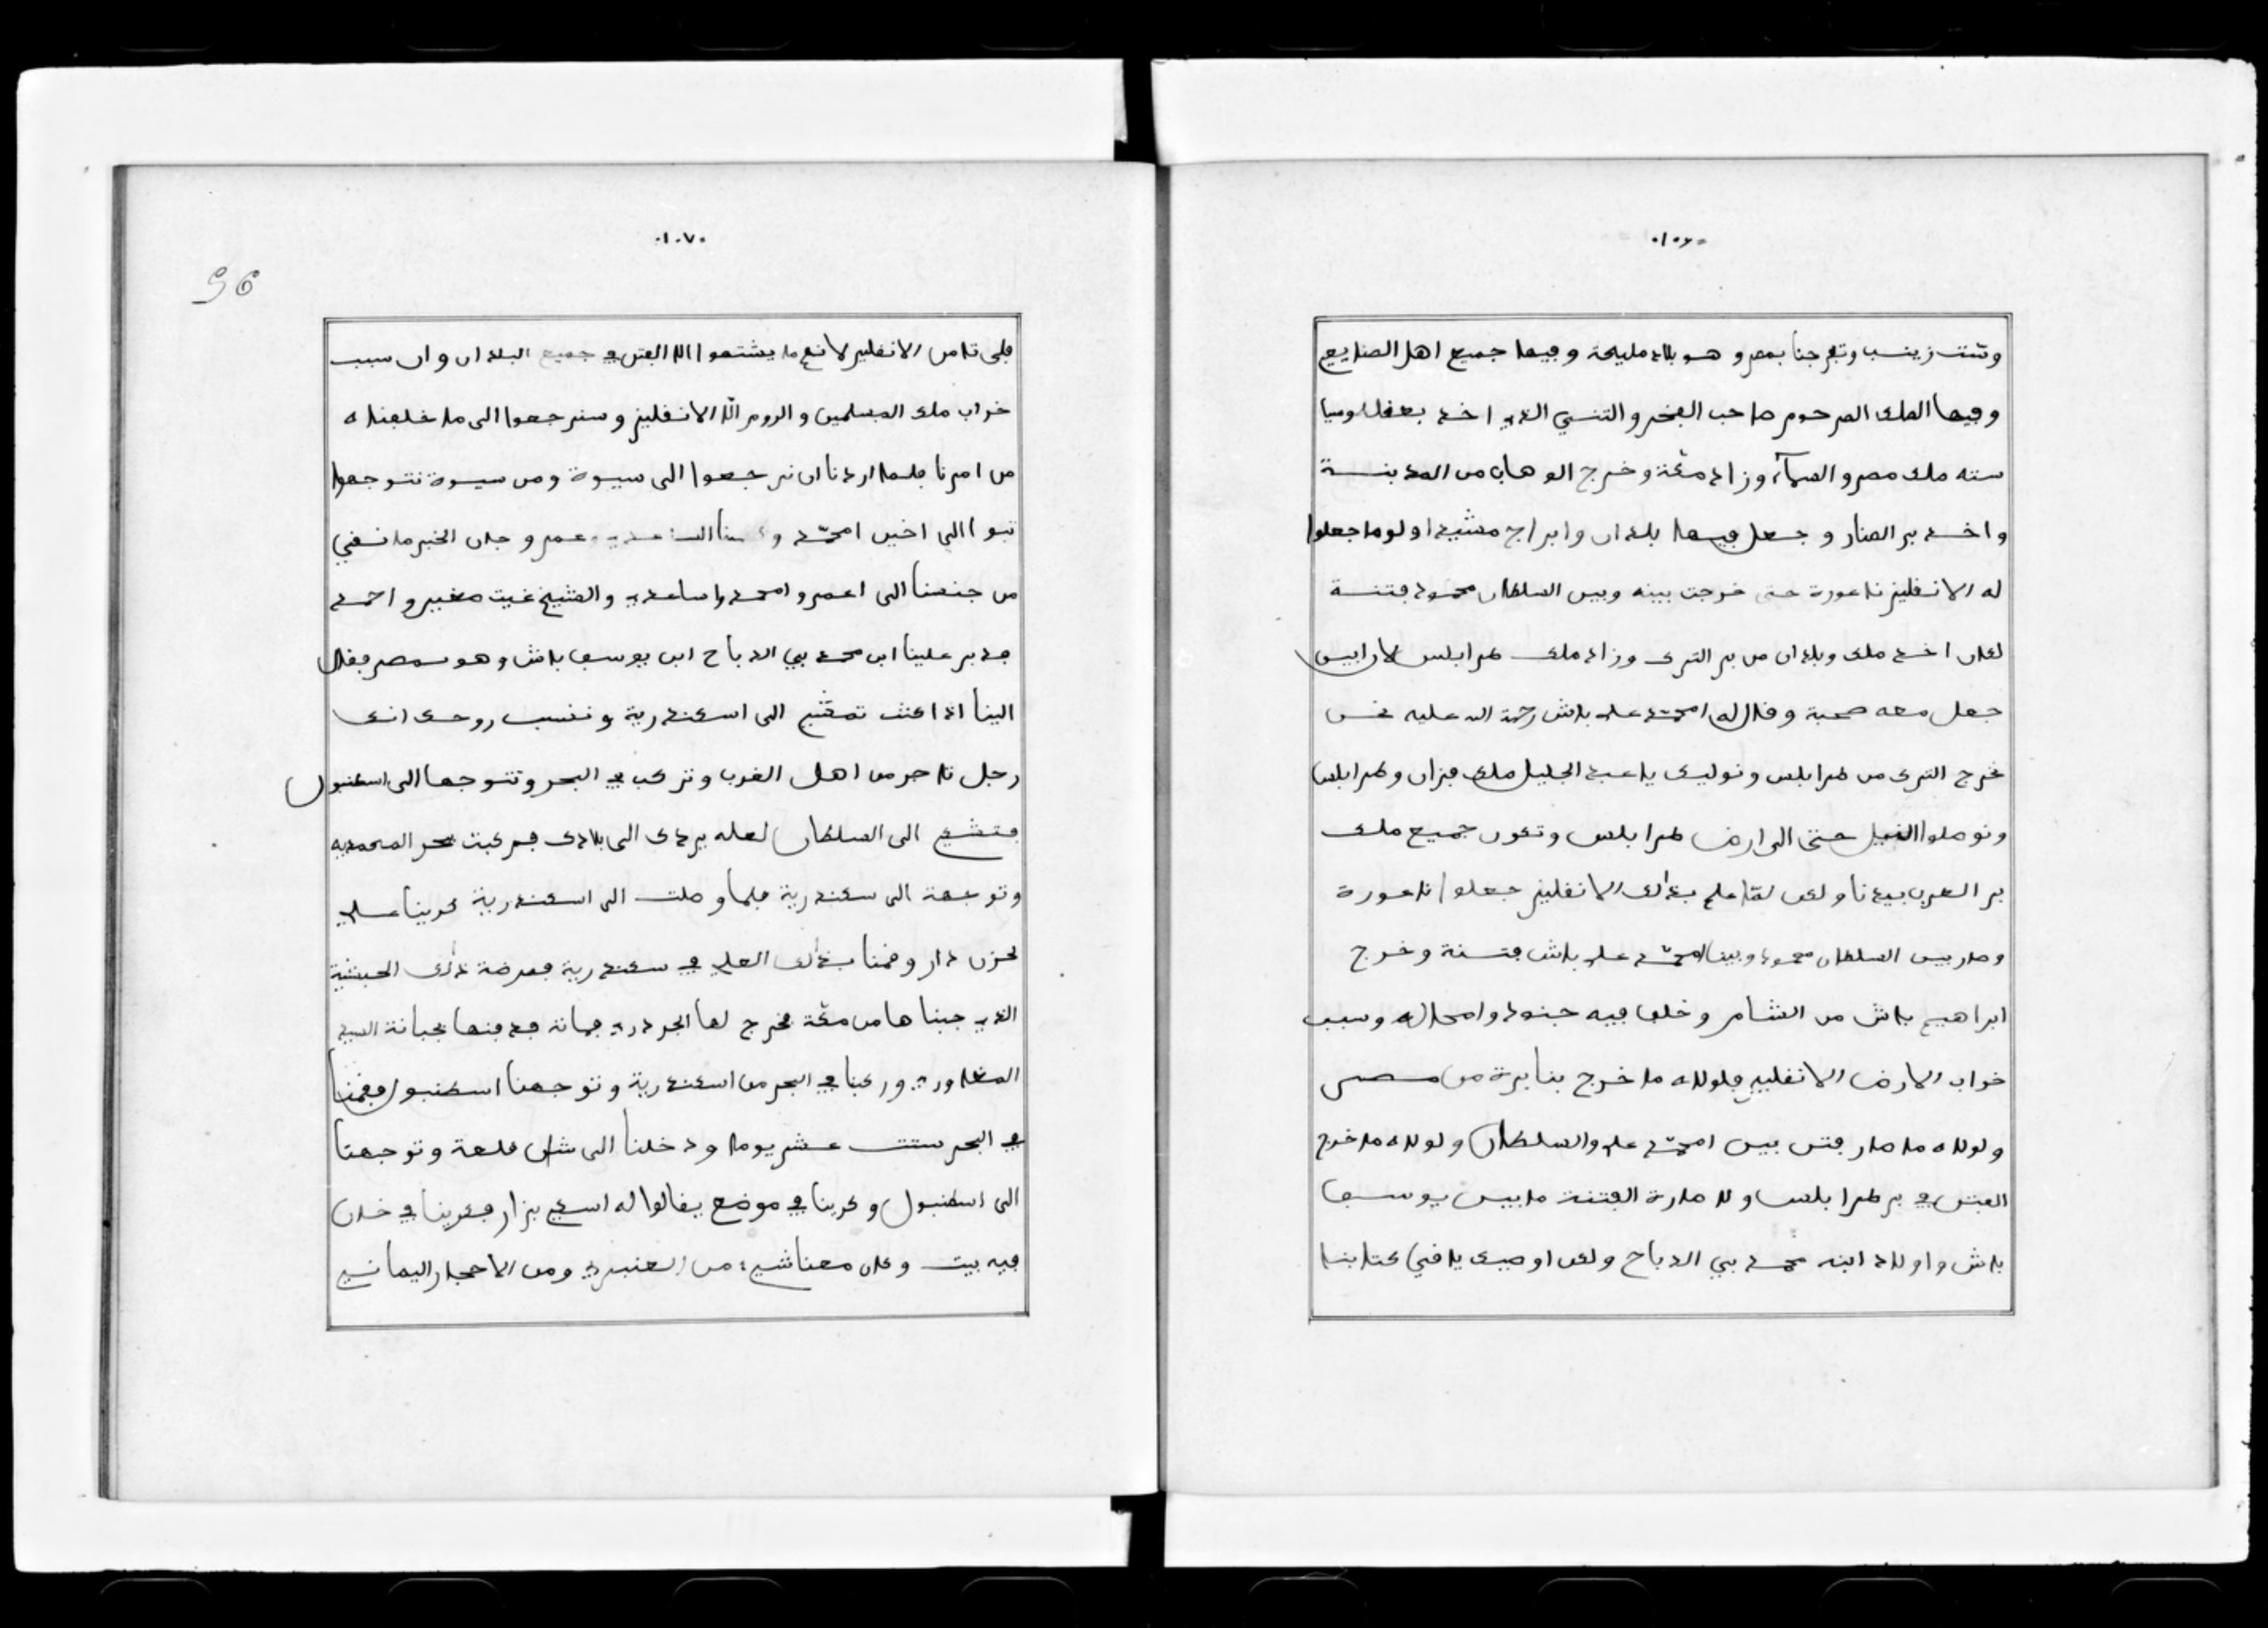 .١٠٦.
وستت زينب وتفرجنا بمصر و هو بلاد مليحة وفيها جميع اهل الصنايع
وفيها الملك المرحوم صاحب الفخر والتنسي الذي اخذ بعقله وسيا
سته ملك مصر و الصماء وزاد مكة وخرج الوهاب من المدينـــة
واخذ بر الصنار و جعل فيها بلدان وابراج مشيد اولو ما جعلوا
له الانقليز ناعورة حتى خرجت بينه وبين السلطان محمود فتنــة
لكان اخذ ملك وبلدان من بر الترك وزاد ملك طرابلس لان ابيس
جعل معه صحبة وقال له امحمد علي باش رحمة الله عليه نحن
نخرج الترك من طرابلس ونوليك يا عبد الجليل ملك فزان وطرابلس
ونوصلوا النيل حتى الى ارض طرابلس وتكون جميع ملك
بر العرب بيدنا ولكن لمّا علم بذلك الانقليز جعلوا ناعورة
وصار بين السلطان محمود وبين امحمد علي باش فتنة وخرج
ابراهيم باش من الشام وخلف فيه جنود وامحال له وسبب
خراب الارض الانقليز فلولاه ما خرج بنابرة من مصــر
ولولاه ما صار فتن بين امحمد علي والسلطان ولولاه ما خرج
الفتن في بر طرابلس ولا صارة الفتنة ما بين يوسف
باش واولاد ابنه محمد بي الدباح ولكن اوصيك يا في كتابنا
.١٠٧.
96
فلى تامن الانقليز لانهم ما يشتهوا الا الفتن في جميع البلدان وان سبب
خراب ملك المسلمين والروم الّا الانقليز وسنرجعوا الى ما خلفناه
من امرنا فلما اردنا ان نرجعوا الى سيوة ومن سيوة نتوجهوا
تبوا الى اخين امحمد و عمر و جان الخبر ما نفني
من جنسنا الى اعمر و امحمد واساعدي والشيخ غيت مخير و احمد
فدبر علينا ابن محمد بي الدباح ابن يوسف باش وهو بمصر فقال
الينا اذا كنت تمشي الى اسكندرية وتنسب روحك انك
رجل تاجر من اهل الغرب وتركب في البحر وتتوجها الى اسطنبول
فتشكي الى السلطان لعله يردك الى بلادك فركبت بحر المحمديه
وتوجهة الى سكندرية فلما وصلت الى اسكندرية كرينا علي
لحزن دار وقمنا بذلك العلي في سكندرية فمرضة ذلك الحبشية
الذي جبناها من مكة فخرج لها الجردري فماتة فدفنها بجبانة السيد
المغاوري وركبنا في البحر من اسكندرية وتوجهنا اسطنبول فقمنا
في البحر ستت عشر يوما ودخلنا الى شان قلعة وتوجهنا
الى اسطنبول وكرينا في موضع يقالوا له اسيى بزار فكرينا في خان
فيه بيت وكان معنا شيء من العنبري ومن الاحجار اليماني